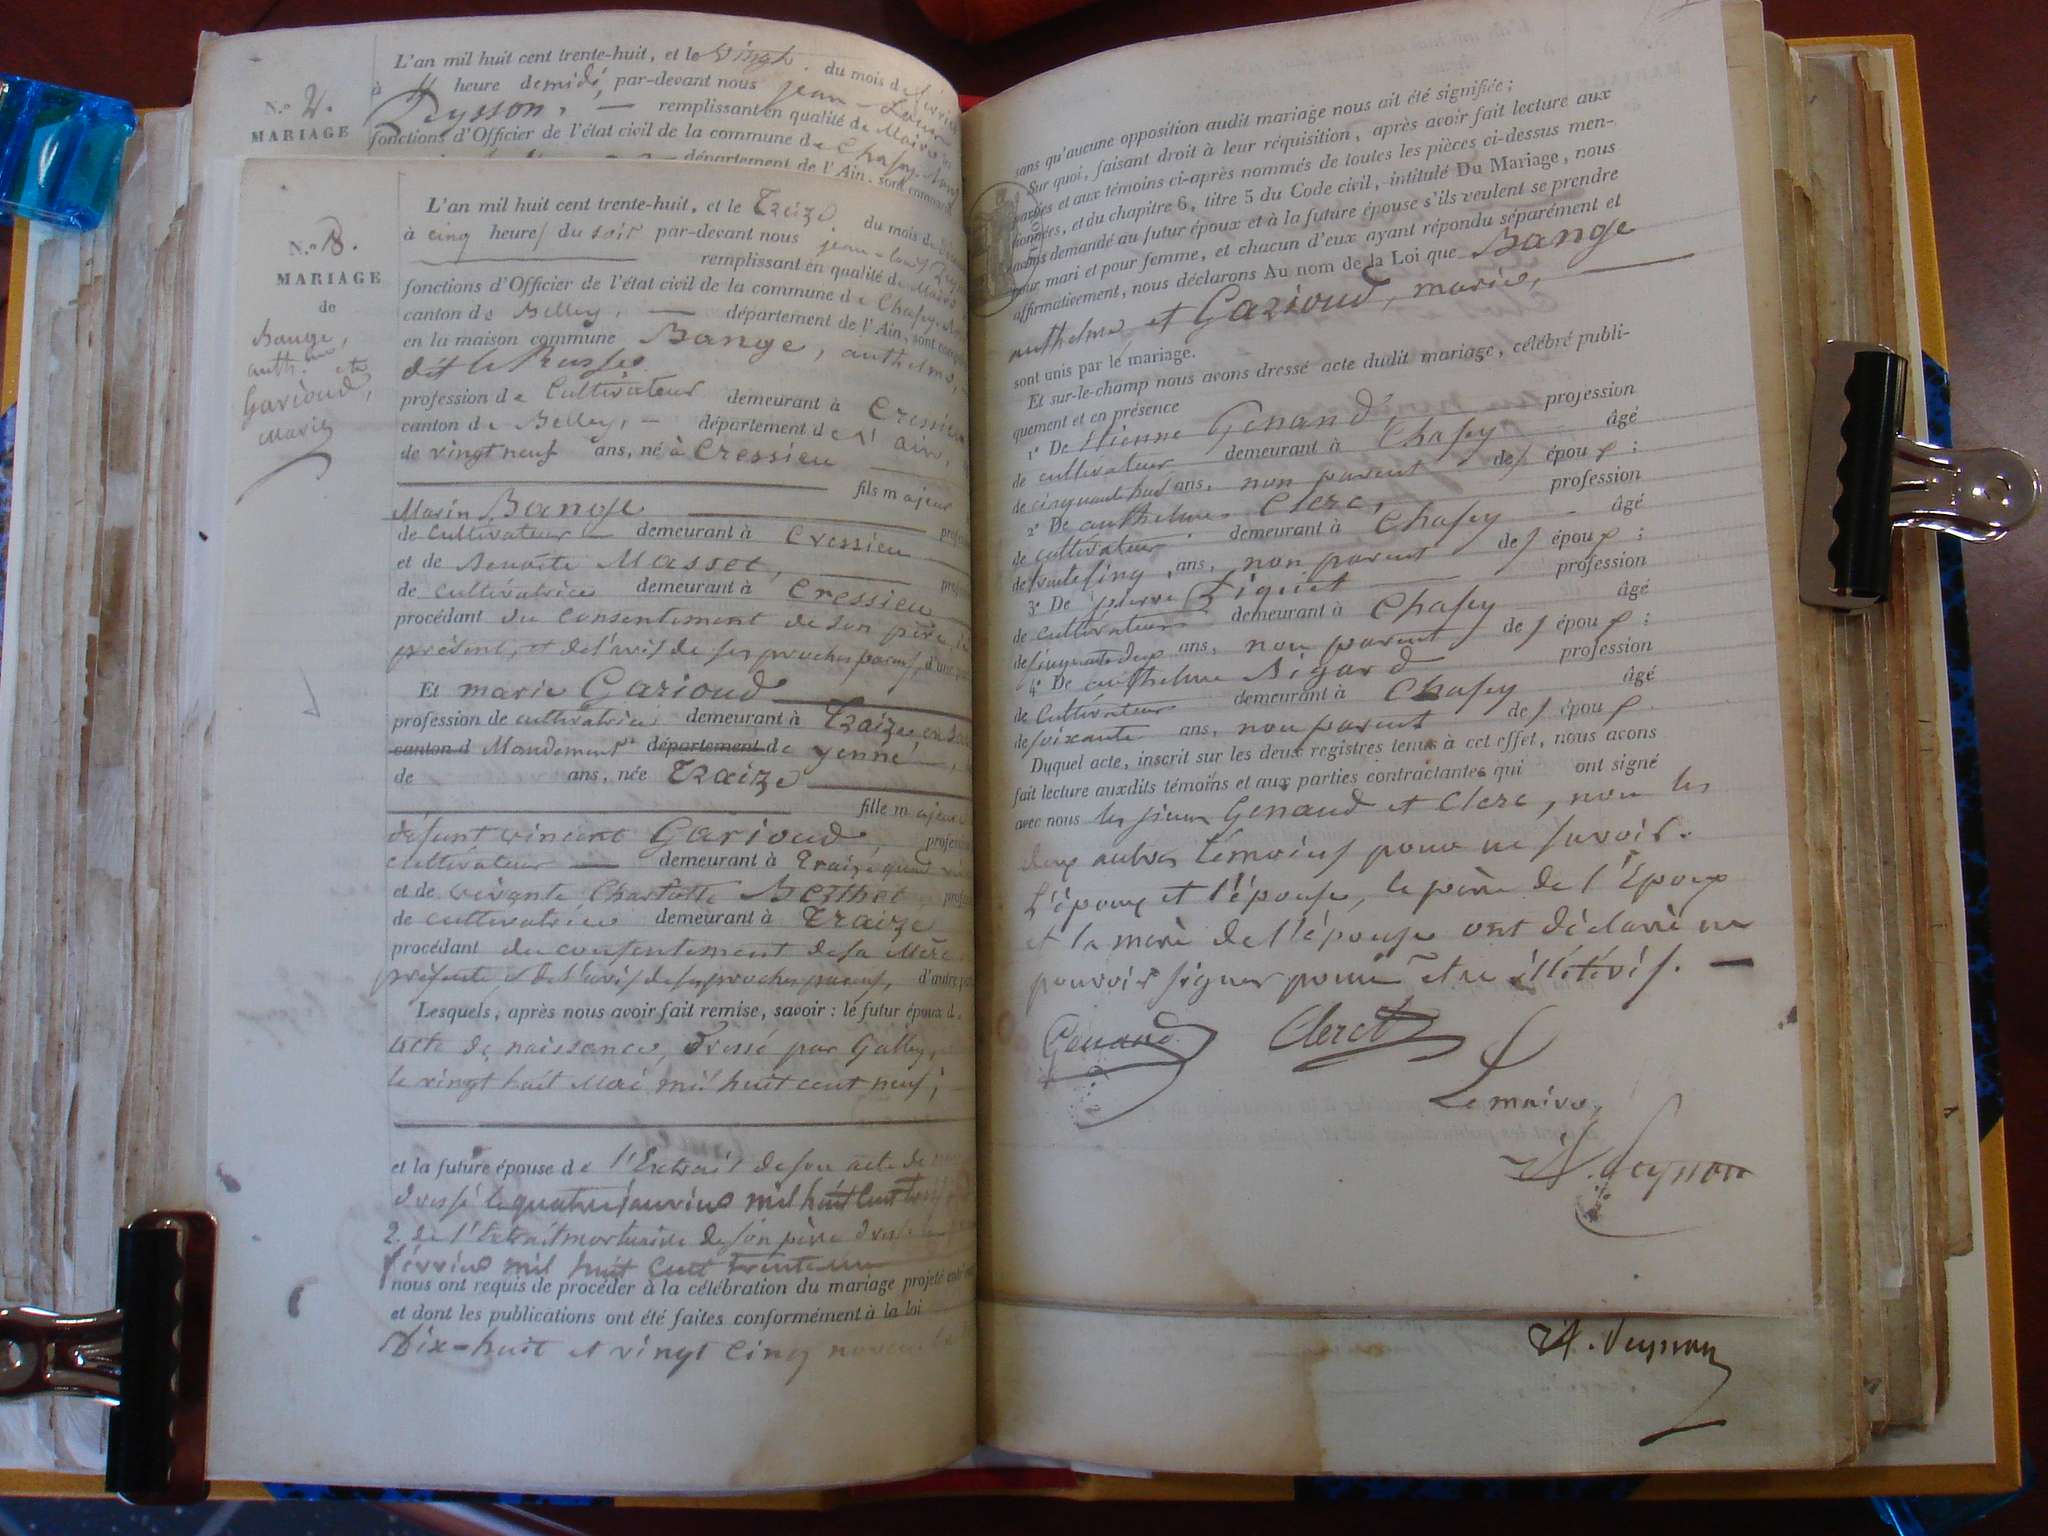 L'an mil huit cent trente-huit, et le vingt du mois de février
à 4 heure demidi, par-devant nous jean-Louis
N.º 2. Peysson, — remplissant en qualité de Maire les
MARIAGE fonctions d'Officier de l'état civil de la commune de Chasey
département de l'Ain, sont
L'an mil huit cent trente-huit, et le Treize du mois de
à cinq heures du soir par-devant nous jean-louis
N.º 8. remplissant en qualité de Maire
MARIAGE fonctions d'Officier de l'état civil de la commune de Chasey
de canton de Belley, — département de l'Ain, sont
Bange, en la maison commune Bange, anthelme,
anth.me et dit le Russe
Garioud, profession de Cultivateur demeurant à Cressieu
marie canton de Belley, — département de l'ain,
de vingt neuf ans, né à Cressieu
fils majeur
Marin Bange
de Cultivateur — demeurant à Cressieu
et de Benoîte Masset,
de cultivatrice demeurant à Cressieu
procédant du consentement de son père,
présent, et de l'avis de ses proches parens, d'une
Et marie Garioud
profession de cultivatrice demeurant à Traize en
canton d Mandement département de yenne
de ans, née Traize
fille majeure
défunt vincent Garioud,
cultivateur — demeurant à Traize quand
et de vivante Charlotte Berthet
de cultivatrice demeurant à Traize
procédant du consentement de sa Mère
présente, et de l'avis de ses proches parens, d'autre
Lesquels, après nous avoir fait remise, savoir : le futur époux d
acte de naissance, dressé par Gallay,
le vingt huit Mai mil huit cent neuf;
et la future épouse de l'Extrait de son acte de
dressé le quatre janvier mil huit cent
2. de l'Extrait mortuaire de son père dressé le
février mil huit cent trente un
nous ont requis de procéder à la célébration du mariage projeté
et dont les publications ont été faites conformément à la loi
Dix-huit et vingt cinq
sans qu'aucune opposition audit mariage nous ait été signifiée ;
Sur quoi, faisant droit à leur réquisition, après avoir fait lecture aux
parties et aux témoins ci-après nommés de toutes les pièces ci-dessus men-
tionnées, et du chapitre 6, titre 5 du Code civil, intitulé Du Mariage, nous
avons demandé au futur époux et à la future épouse s'ils veulent se prendre
pour mari et pour femme, et chacun d'eux ayant répondu séparément et
affirmativement, nous déclarons Au nom de la Loi que Bange
anthelme et Garioud, marie,
sont unis par le mariage.
Et sur-le-champ nous avons dressé acte dudit mariage, célébré publi-
quement et en présence
1º De Etienne Genand profession
de cultivateur demeurant à Chasey âgé
de cinquante huit ans, non parent des époux ;
2º De anthelme Clerc, profession
de cultivateur demeurant à Chasey âgé
de ans, non parent des époux ;
3º De pierre profession
de Cultivateur demeurant à Chasey âgé
de cinquante deux ans, non parent des époux ;
4º De anthelme profession
de Cultivateur demeurant à Chasey âgé
de soixante ans, non parent des époux.
Duquel acte, inscrit sur les deux registres tenus à cet effet, nous avons
fait lecture auxdits témoins et aux parties contractantes qui ont signé
avec nous les sieurs Genand et Clerc, non les
deux autres témoins pour ne savoir.
L'époux et l'épouse, le père de l'Epoux
et la mère de l'épouse ont déclaré ne
pouvoir signer pour être illétérés. —
Genand Clerc
Le maire,
Peysson
Peysson